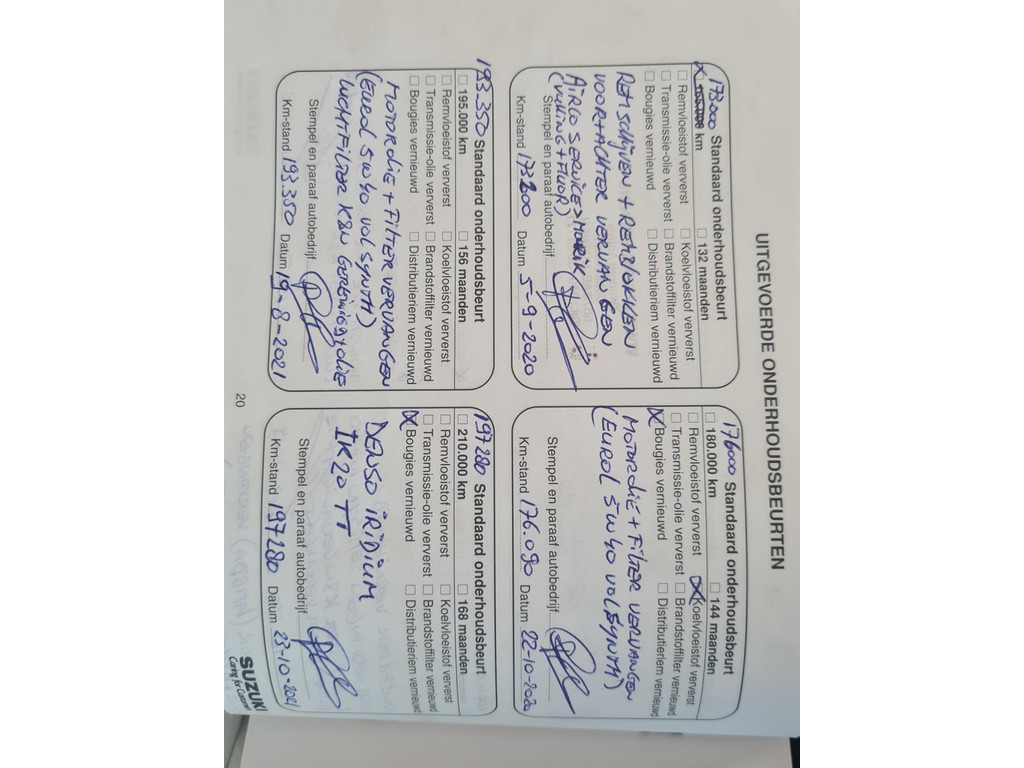 UITGEVOERDE ONDERHOUDSBEURTEN
173000 Standaard onderhoudsbeurt
165.000 km □ 132 maanden
□ Remvloeistof ververst □ Koelvloeistof ververst
□ Transmissie-olie ververst □ Brandstoffilter vernieuwd
□ Bougies vernieuwd □ Distributieriem vernieuwd
REMSCHIJVEN + REMBLOKKEN
VOOR + ACHTER VERVANGEN
AIRCO SERVICE >
(VULLING + FLUOR)
Stempel en paraaf autobedrijf
Km-stand 173200 Datum 5-9-2020
176000 Standaard onderhoudsbeurt
□ 180.000 km □ 144 maanden
□ Remvloeistof ververst X Koelvloeistof ververst
□ Transmissie-olie ververst □ Brandstoffilter vernieuwd
X Bougies vernieuwd □ Distributieriem vernieuwd
MOTOROLIE + FILTER VERVANGEN
(EUROL 5W40 VOLSYNTH)
Stempel en paraaf autobedrijf
Km-stand 176.090 Datum 22-10-2020
193.350 Standaard onderhoudsbeurt
□ 195.000 km □ 156 maanden
□ Remvloeistof ververst □ Koelvloeistof ververst
□ Transmissie-olie ververst □ Brandstoffilter vernieuwd
□ Bougies vernieuwd □ Distributieriem vernieuwd
MOTOROLIE + FILTER VERVANGEN
(EUROL 5W40 VOLSYNTH)
LUCHTFILTER K&N GEREINIGD/OLIE
Stempel en paraaf autobedrijf
Km-stand 193.350 Datum 19-8-2021
197280 Standaard onderhoudsbeurt
□ 210.000 km □ 168 maanden
□ Remvloeistof ververst □ Koelvloeistof ververst
□ Transmissie-olie ververst □ Brandstoffilter vernieuwd
X Bougies vernieuwd □ Distributieriem vernieuwd
DENSO IRIDIUM
IK20 TT
Stempel en paraaf autobedrijf
Km-stand 197280 Datum 23-10-2021
20
SUZUKI
Caring for Customers